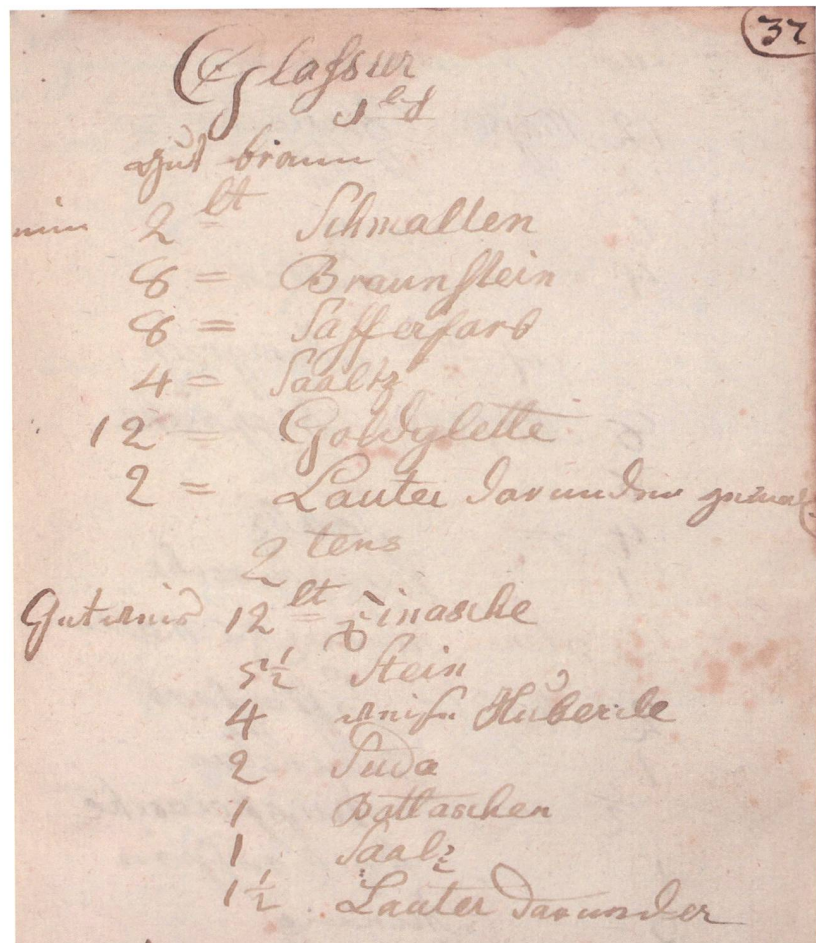 37
Glassur
1 tes
gut braun
nim 2 lt Schmalten
8 = Braunstein
8 = Safferfarb
4 = Saaltz
12 = Goldglette
2 = Lauter darunder
2 tens
Gut weis 12 lt Zinasche
5½ Stein
4 weise Huberde
2 Suda
1 Battaschen
1 Saalz
1½ Lauter darunder